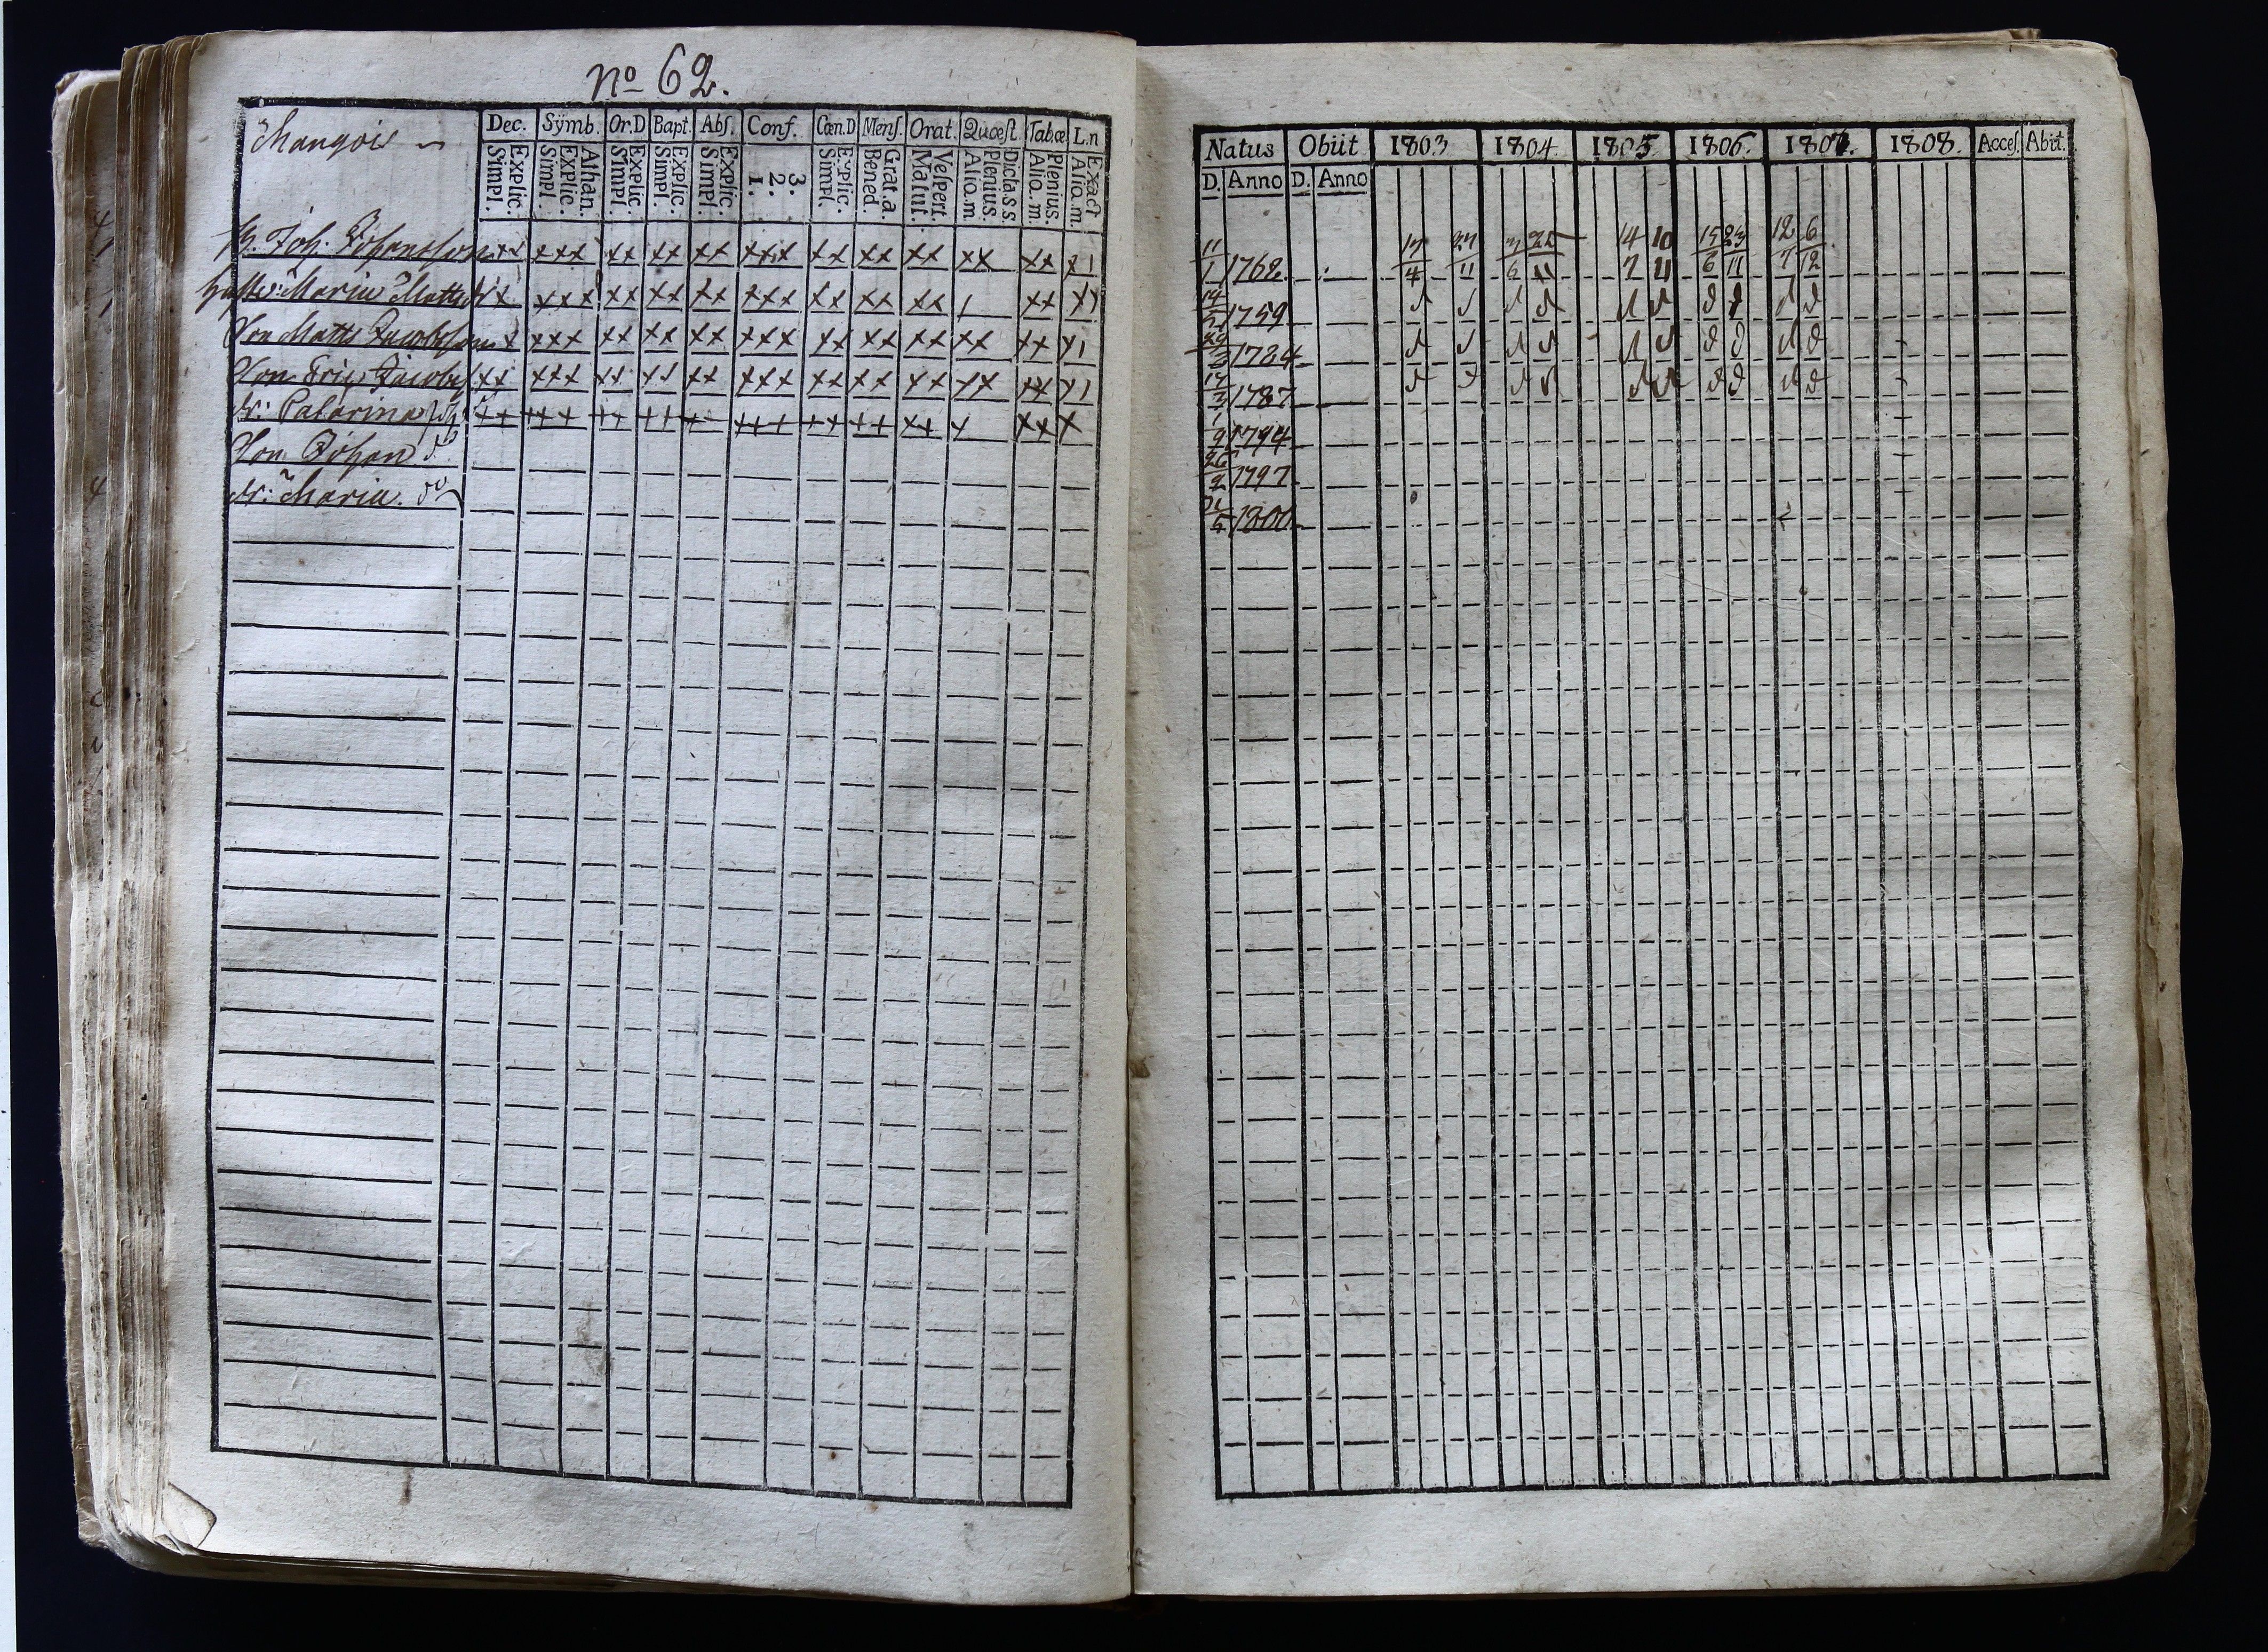 No 62.
Dec. Symb. Or.D Bapt. Abs. Conf. Cœn.D Mens. Orat. Quæst. Tabœ. L.n
Explic. Simpl. Athan. Explic. Simpl. Explic. Simpl. Explic. Simpl. Explic. Simpl. 3. 2. 1. Explic. Simpl. Grat. a. Bened. Vespert. Matut. Dicta s.s. Plenius. Alio. m. Plenius. Alio. m. Exact Alio. m.
Joh. Johansson xx xxx xx xx xx xxx xx xx xx xx xx x1
Maria Matts xx xxx xx xx xx xxx xx xx xx 1 xx
Son Matts Jacobsson xxx xx xx xx xxx xx xx xx xx xx x1
Son Eric Jacobs xx xxx xx xx xx xxx xx xx xx xx xx x1
Dr: Catarina xx xxx xx xxx xx xx xx x xxx x
Son Johan do
Dr: Maria do
Natus Obiit 1803 1804. 1805. 1806. 1807. 1808. Acces. Abit.
D. Anno D. Anno
11/1 1762. 17/4 27/11 3/6 25/11 14/7 10/11 15/6 23/11 12/7 6/12
14/5 1759
1784
17/3 1787
1/9 1794
26/2 1797
1800